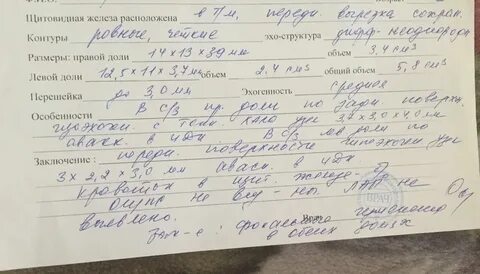 Щитовидная железа расположена в т/м, передн. вырезка сохран.
Контуры ровные, четкие эхо-структура дифф-неоднородн
Размеры: правой доли 14 х 13 х 39 мм объем 3,4 см³
Левой доли 12,5 х 11 х 3,7 мм объем 2,4 см³ общий объем 5,8 см³
Перешейка до 3,0 мм Эхогенность средняя
Особенности В с/з пр. доли по задн поверхн.
гипоэхоген с тонк. узел 3,0 мм
аваск. в ЦДК В с/з лев доли по
Заключение: передн. поверхности гипоэхоген узел
3 х 2,2 х 3,0 мм аваск. в ЦДК
кровоток в щит железе
не ЛАП не
выявлено.
Закл-е: фокальных
в обеих долях
ВРАЧ